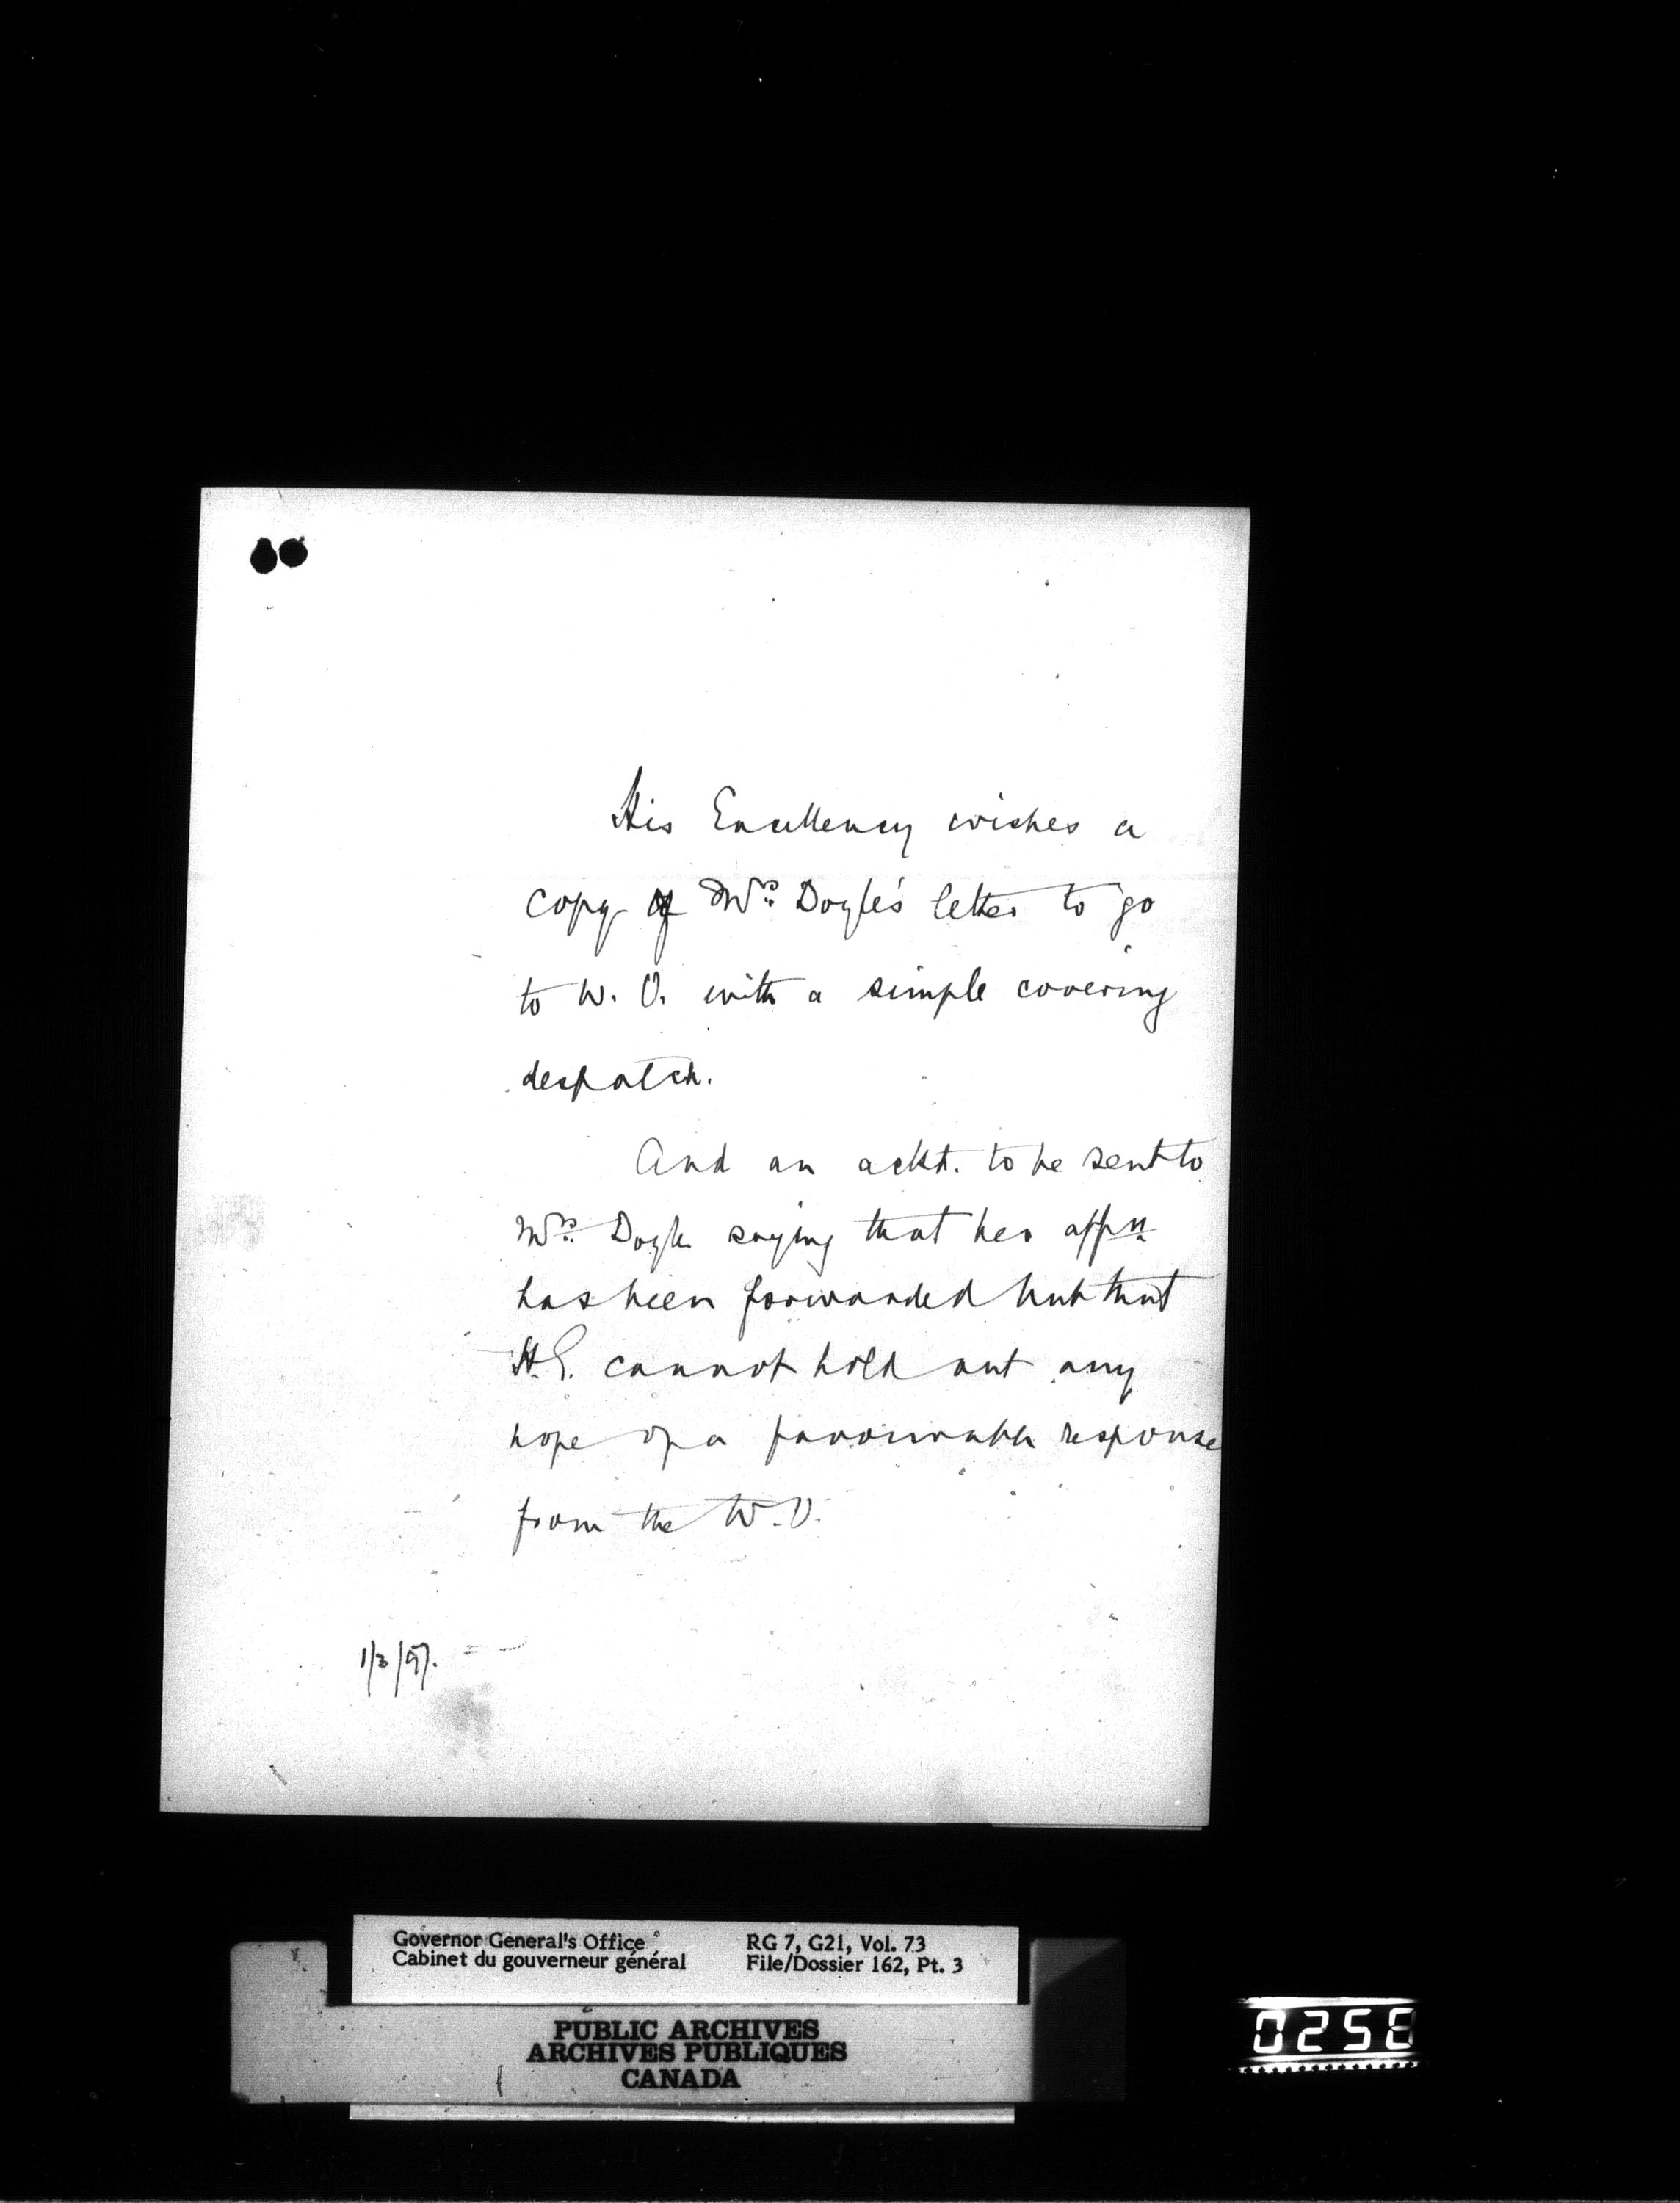 His Excellency wishes a
copy of Mrs. Doyle's letter to go
to W. O. with a simple covering
despatch.
And an ackt. to be sent to
Mrs. Doyle saying that her appn.
has been forwarded but that
H.E. cannot hold out any
hope of a favourable response
from the W.O.
1/3/97.
Governor General's Office
Cabinet du gouverneur général
RG 7, G21, Vol. 73
File/Dossier 162, Pt. 3
PUBLIC ARCHIVES
ARCHIVES PUBLIQUES
CANADA